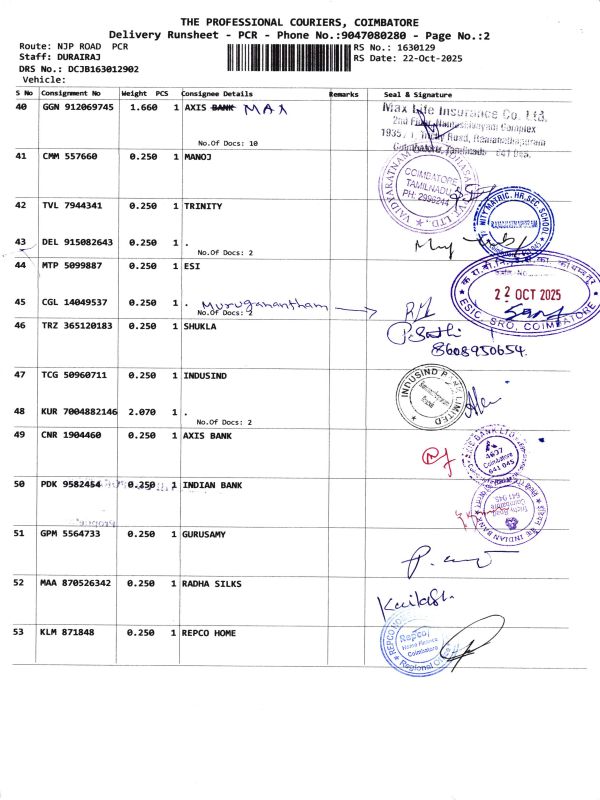 THE PROFESSIONAL COURIERS, COIMBATORE
Delivery Runsheet - PCR - Phone No.:9047080280 - Page No.:2
Route: NJP ROAD PCR
RS No.: 1630129
Staff: DURAIRAJ
RS Date: 22-Oct-2025
DRS No.: DCJB163012902
Vehicle:
S No Consignment No Weight PCS Consignee Details Remarks Seal & Signature
40 GGN 912069745 1.660 1 AXIS BANK MAX
No.Of Docs: 10
Max Life Insurance Co. Ltd.
2nd Floor, Complex
1935 / 1, Trichy Road, Ramanathapuram
Coimbatore, Tamilnadu - 641
41 CMM 557660 0.250 1 MANOJ
VAIDYARATNAM
COIMBATORE
TAMILNADU
PH: 2996244
42 TVL 7944341 0.250 1 TRINITY
MATRIC. HR. SEC. SCHOOL
43 DEL 915082643 0.250 1 .
No.Of Docs: 2
44 MTP 5099887 0.250 1 ESI
22 OCT 2025
ESIC, SRO, COIMBATORE
45 CGL 14049537 0.250 1 . Muruganantham
No.Of Docs: 2
46 TRZ 365120183 0.250 1 SHUKLA
8608950654
47 TCG 50960711 0.250 1 INDUSIND
INDUSIND BANK LIMITED
48 KUR 7004882146 2.070 1 .
No.Of Docs: 2
49 CNR 1904460 0.250 1 AXIS BANK
BANK LTD
4937
Coimbatore
641 045
50 PDK 9582454 0.250 1 INDIAN BANK
INDIAN BANK
51 GPM 5564733 0.250 1 GURUSAMY
52 MAA 870526342 0.250 1 RADHA SILKS
Kailash
53 KLM 871848 0.250 1 REPCO HOME
Repco
Home Finance
Coimbatore
Regional